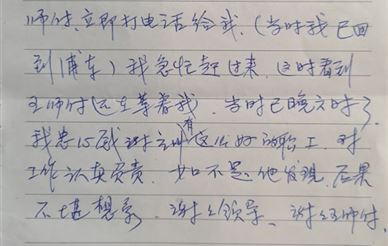 师付,立即打电话给我.(当时我已回
到浦东)我急忙赶过来.这时看到
王师付还在等着我).当时已晚六时了
我忠心感谢立州有这么好的职工.对
工作认真负责.如果不是他发现,后果
不堪想象.谢谢领导.谢谢王师付.